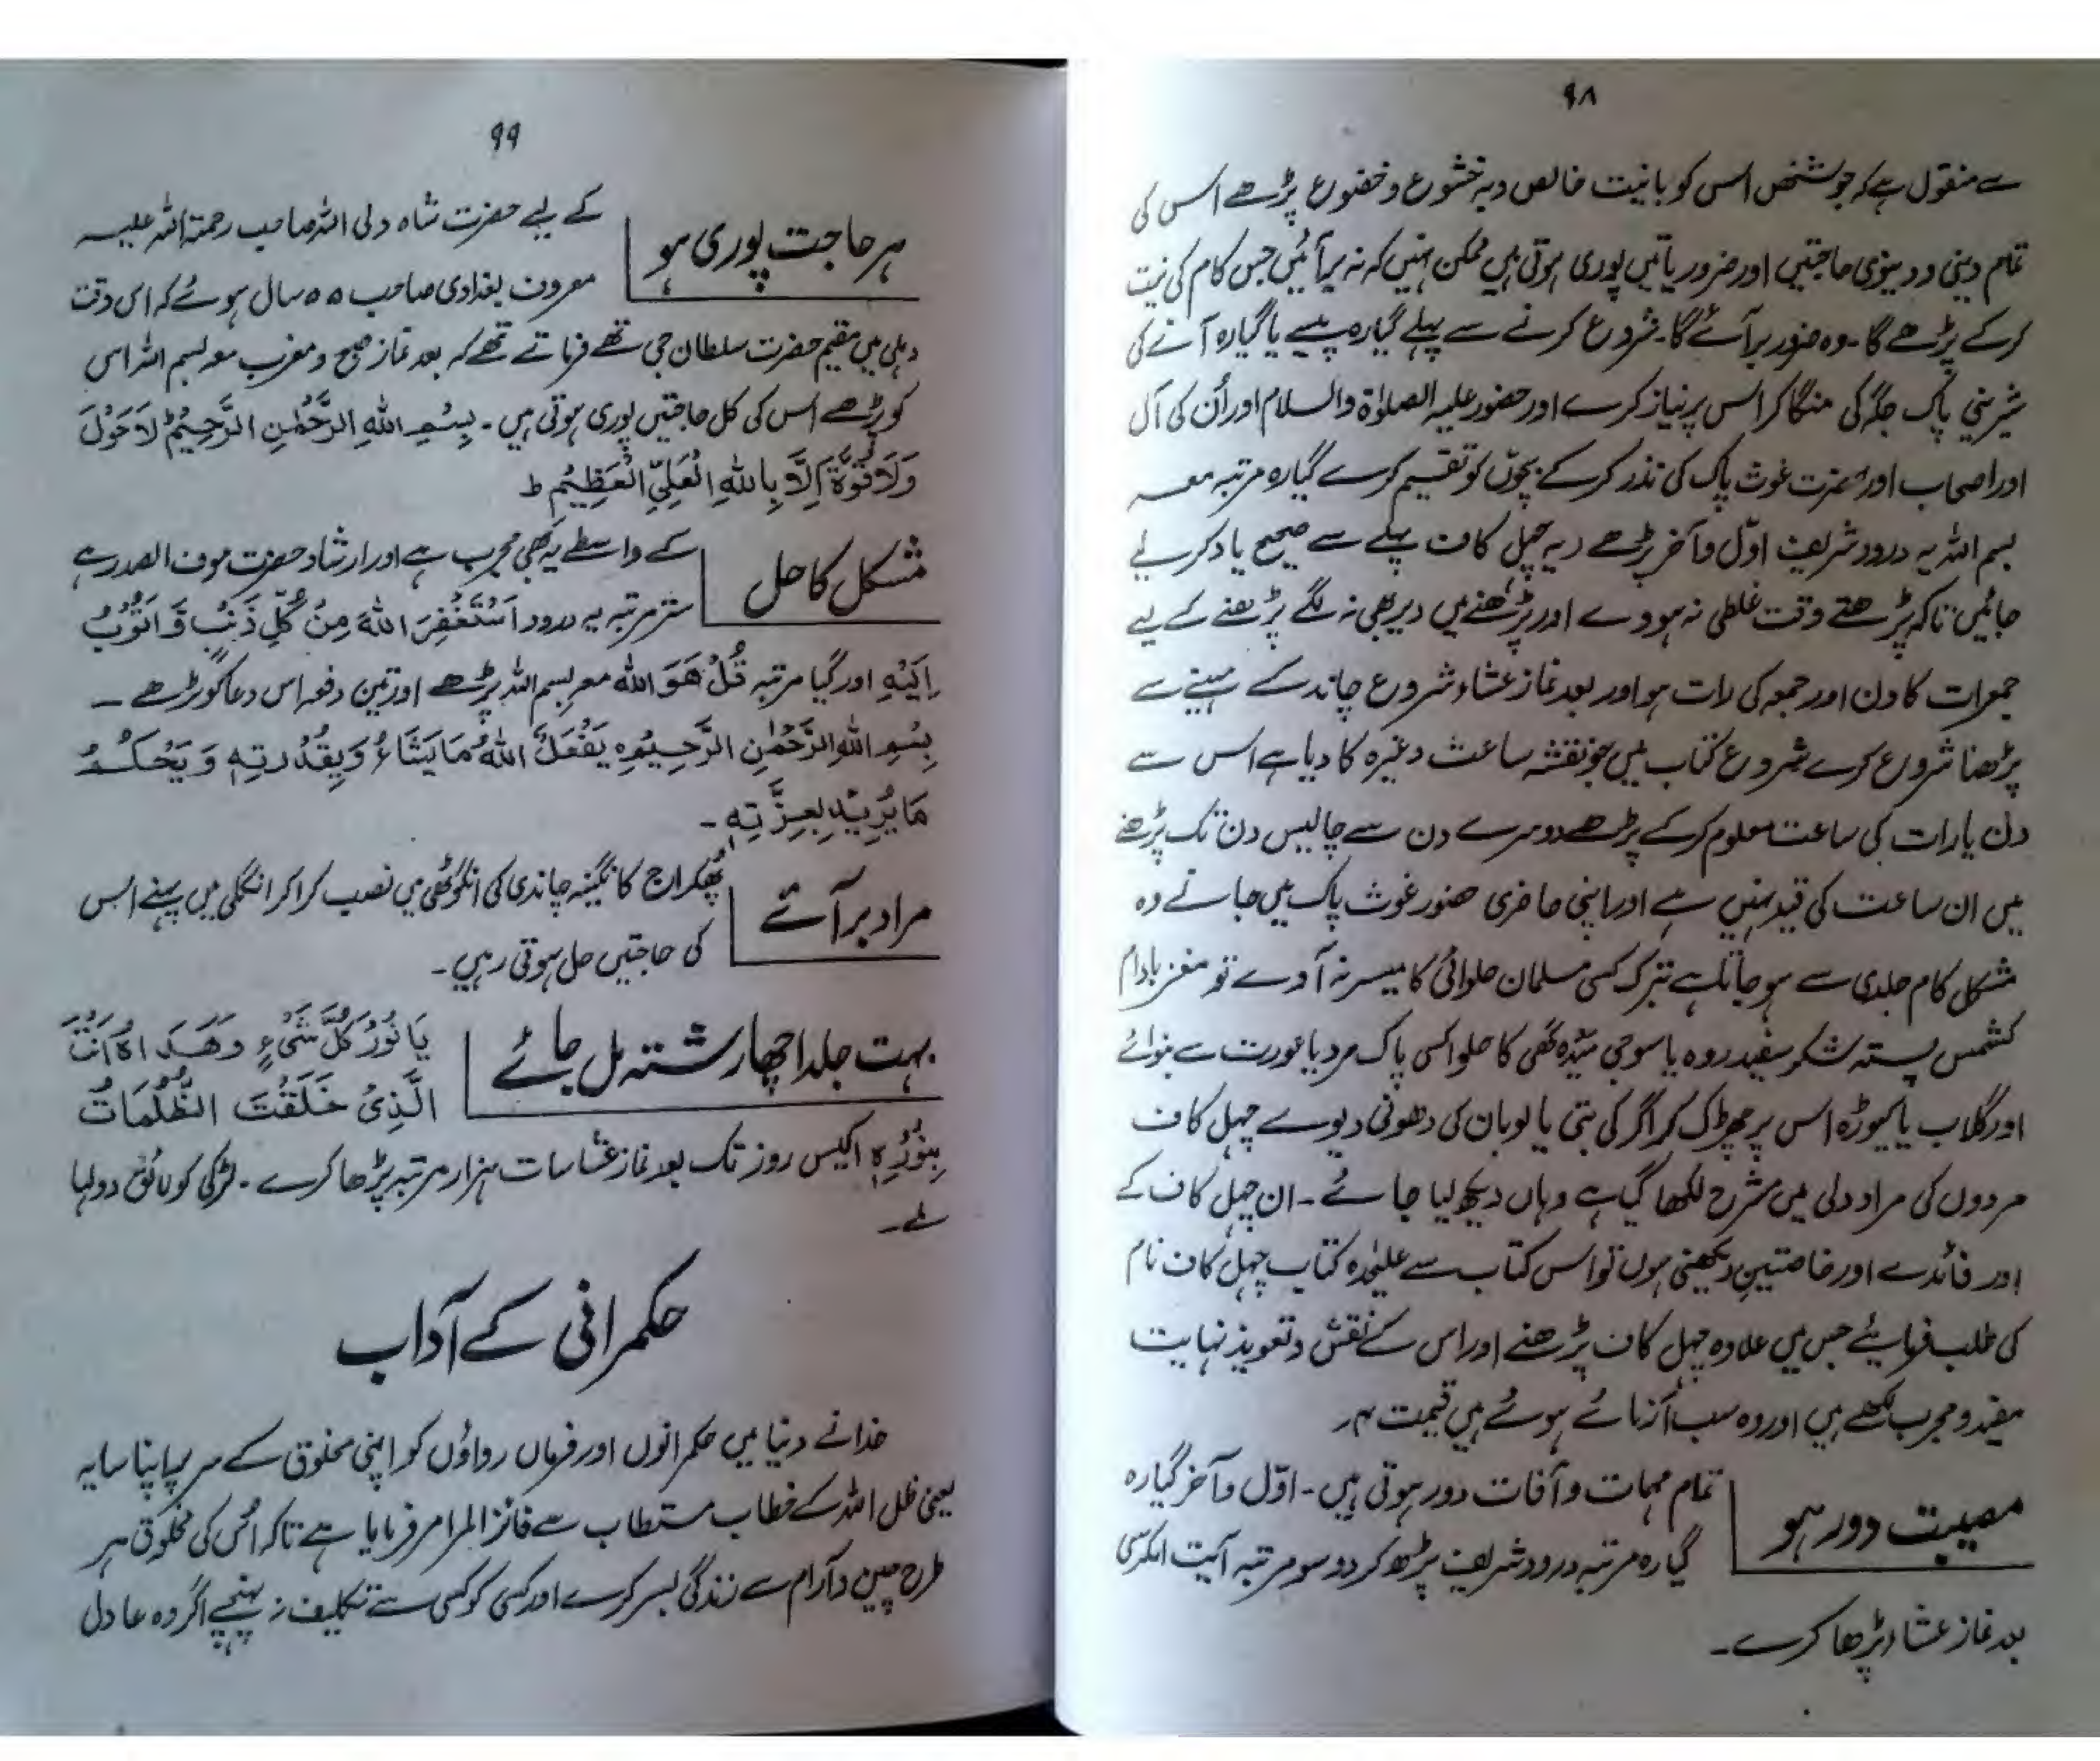 ۹۸
سے منقول ہے کہ جو شخص اس کو بانیت خالص و بہ خشوع و خضوع پڑھے اس کی
تمام دینی و دینوی حاجتیں اور ضروریاتیں پوری ہوتی ہیں ممکن نہیں کہ نہ برآئیں جس کام کی نیت
کر کے پڑھے گا۔ وہ ضرور برآئے گا۔ شروع کرنے سے پہلے گیارہ پیسے یا گیارہ آنے کی
شیرینی پاک جگہ کی منگا کر اس پر نیاز کرے اور حضور علیہ الصلوٰۃ والسلام اور اُن کی آل
اور اصحاب اور حضرت غوث پاک کی نذر کر کے بچوں کو تقسیم کرے گیارہ مرتبہ معہ
بسم اللہ یہ درود شریف اوّل و آخر پڑھے (یہ چہل کاف پہلے سے صحیح یاد کر لیے
جائیں تاکہ پڑھتے وقت غلطی نہ ہووے اور پڑھنے میں دیر بھی نہ لگے پڑھنے کے لیے
جمعرات کا دن اور جمعہ کی رات ہو اور بعد نماز عشاء شروع چاند کے مہینے سے
پڑھنا شروع کرے شروع کتاب میں جو نقشہ ساعت وغیرہ کا دیا ہے اس سے
دن یا رات کی ساعت معلوم کر کے پڑھے دوسرے دن سے چالیس دن تک پڑھنے
میں ان ساعت کی قید نہیں ہے اور اپنی حاضری حضور غوث پاک میں جانے وہ
مشکل کام جلدی سے ہو جاتا ہے تبرک کسی مسلمان حلوائی کا میسر نہ آوے تو مغز بادام
کشمس پستہ شکر سفید روہ یا سوجی میدہ گھی کا حلوا کسی پاک مرد یا عورت سے بنوائے
اور گلاب یا کیوڑہ اس پر چھڑک کر اگر کی بتی یا لوبان کی دھونی دیوے چہل کاف
مردوں کی مراد دلی میں مشرح لکھا گیا ہے وہاں دیکھ لیا جائے۔ ان چہل کاف کے
اور فائدے اور خاصتیں دیکھنی ہوں تو اس کتاب سے علیحدہ کتاب چہل کاف نام
کی طلب فرمایئے جس میں علاوہ چہل کاف پڑھنے اور اس کے نقش و تعویذ نہایت
مفید و مجرب لکھے ہیں اور وہ سب آزمائے ہوئے ہیں قیمت ۴ر
مصیبت دور ہو
تمام مہمات و آفات دور ہوتی ہیں۔ اوّل و آخر گیارہ
گیارہ مرتبہ درود شریف پڑھ کر دو سو مرتبہ آیت الکرسی
بعد نماز عشاء پڑھا کرے۔
۹۹
ہر حاجت پوری ہو
کے لیے حضرت شاہ ولی اللہ صاحب رحمۃ اللہ علیہ
معروف بغدادی صاحب ۵۵ سال ہوئے کہ اس وقت
دہلی میں مقیم حضرت سلطان جی تھے فرماتے تھے کہ بعد نماز صبح و مغرب معہ بسم اللہ اس
کو پڑھے اس کی کل حاجتیں پوری ہوتی ہیں۔ بِسْمِ اللہِ الرَّحْمٰنِ الرَّحِیْمِ لَاحَوْلَ
وَلَا قُوَّۃَ اِلَّا بِاللہِ الْعَلِیِّ الْعَظِیْمِ ط
مشکل کا حل
کے واسطے یہ بھی مجرب ہے اور ارشاد حضرت موف الصدر ہے
ستر مرتبہ یہ درود اَسْتَغْفِرُ اللہَ مِنْ کُلِّ ذَنْبٍ وَّ اَتُوْبُ
اِلَیْہِ اور گیا مرتبہ قُلْ ھُوَ اللہ معہ بسم اللہ پڑھے اور تین دفعہ اس دعا کو پڑھے ۔
بِسْمِ اللہِ الرَّحْمٰنِ الرَّحِیْمِ یَفْعَلُ اللہُ مَا یَشَاءُ وَ بِقُدْرَتِہٖ وَ یَحْکُمُ
مَا یُرِیْدُ بِعِزَّتِہٖ ۔
مراد برآئے
پکھراج کا نگینہ چاندی کی انگوٹھی میں نصب کرا کر انگلی میں پہنے اس
کی حاجتیں حل ہوتی رہیں۔
بہت جلد اچھا رشتہ مل جائے
یَا نُوْرُ کُلِّ شَیْءٍ وَھُدَاہُ اَنْتَ
الَّذِیْ خَلَقْتَ الظُّلُمَاتُ
بِنُوْرِہٖ اکیس روز تک بعد نماز عشا سات ہزار مرتبہ پڑھا کرے۔ لڑکی کو لائق دولہا
ملے۔
حکمرانی کے آداب
خدا نے دنیا میں حکمرانوں اور فرماں رواؤں کو اپنی مخلوق کے سر پر اپنا سایہ
یعنی ظل اللہ کے خطاب مستطاب سے فائز المرام فرمایا ہے تاکہ اُس کی مخلوق ہر
طرح چین و آرام سے زندگی بسر کرے اور کسی کو کسی سے تکلیف نہ پہنچے اگر وہ عادل